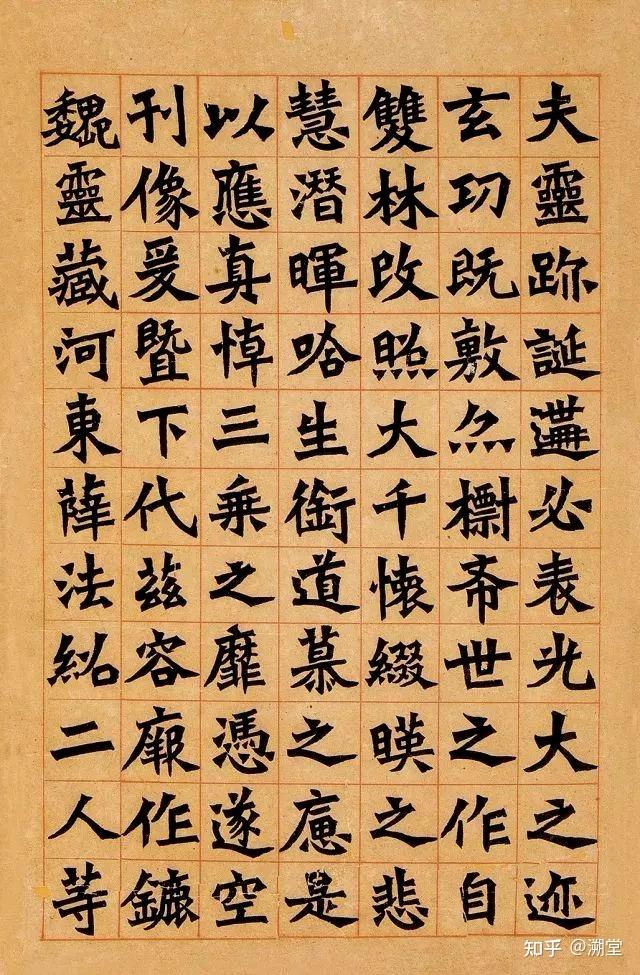 夫靈跡誕遘必表光大之迹
玄功既敷亦標希世之作自
雙林改照大千懷綴暎之悲
慧潛暉唅生銜道慕之是
以應真悼三乘之靡憑遂空
刊像爰暨下代茲容厥作鏕
魏靈藏河東薛法紹二人等
知乎 @溯堂